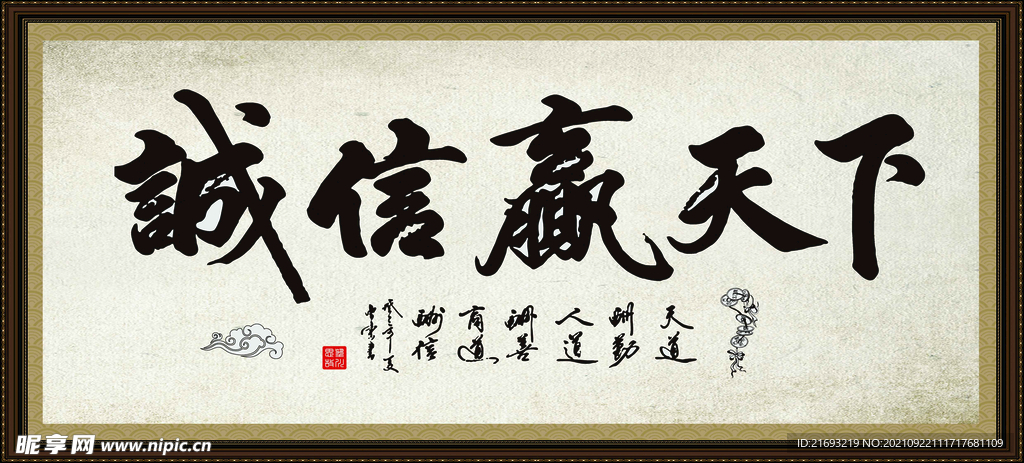 誠信贏天下
天道
酬勤
人道
酬善
商道
酬信
昵享网 www.nipic.cn
ID:21693219 NO:20210922111717681109